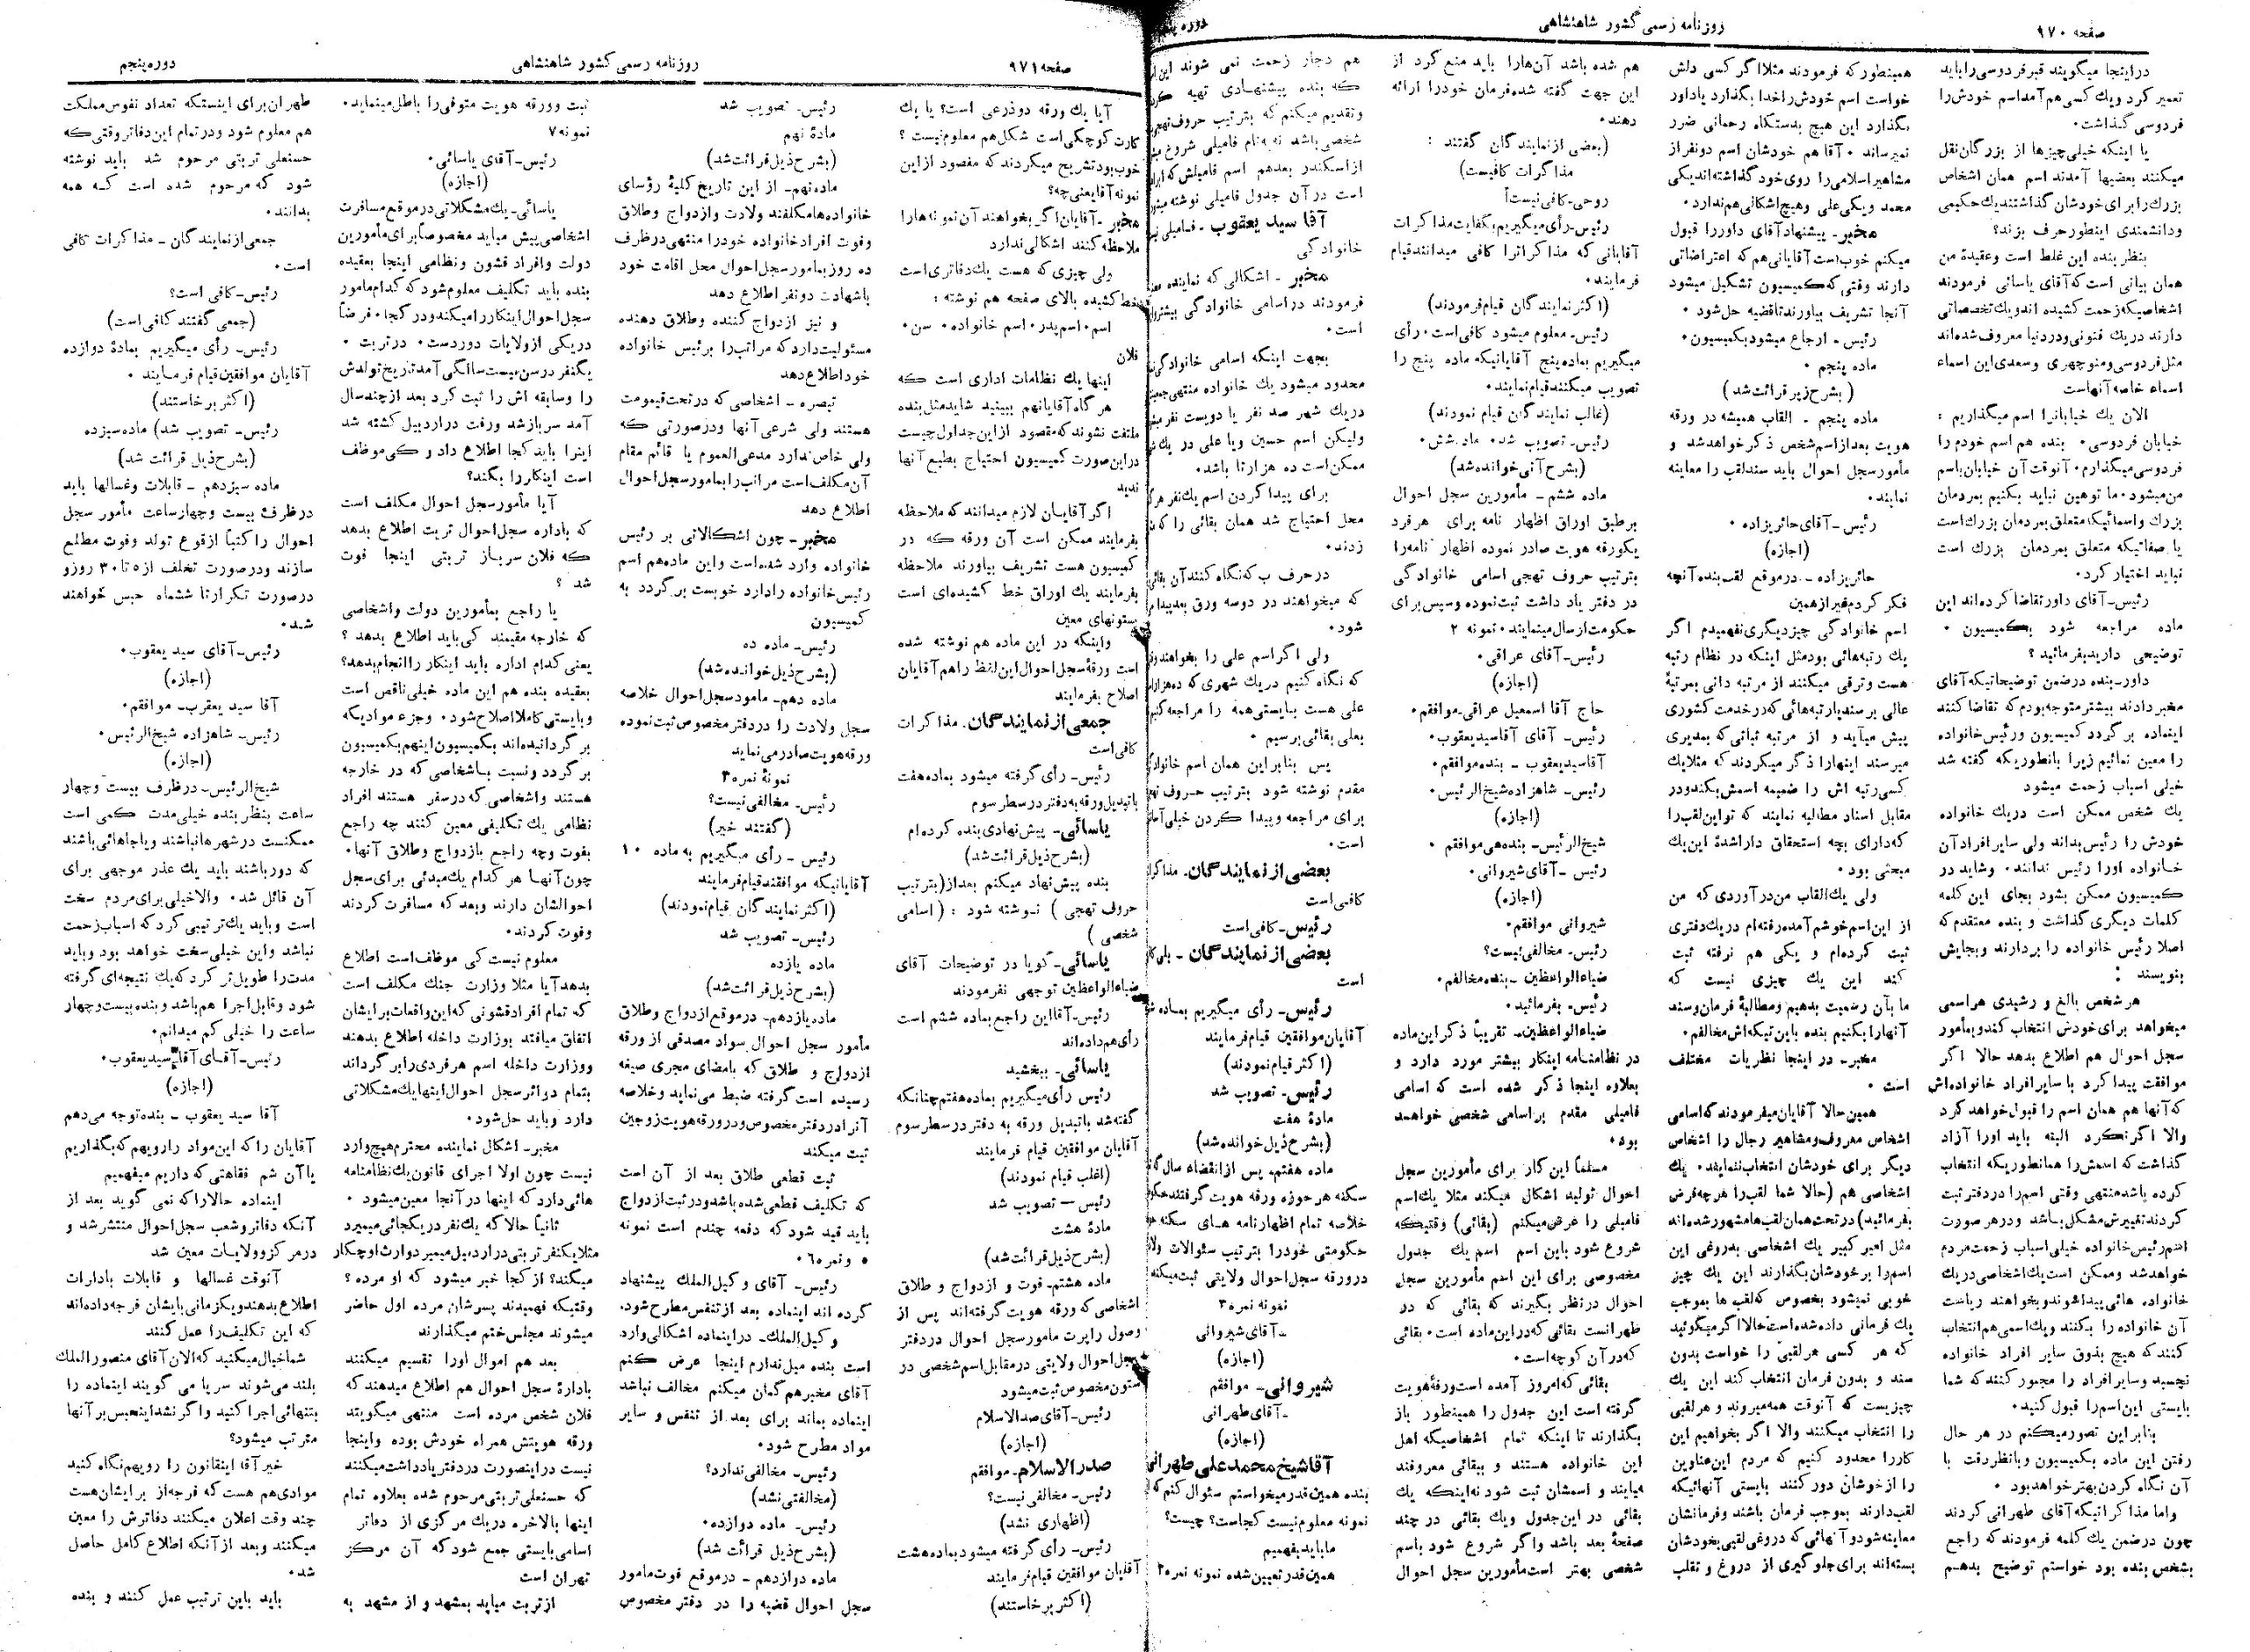 صفحه ۹۷۰
روزنامه رسمی کشور شاهنشاهی
دوره پنجم
دراینجا میگویند قبر فردوسی را باید
تعمیر کرد ویك کسی هم آمد اسم خودش را
فردوسی گذاشت.
یا اینکه خیلی چیزها از بزرگان نقل
میکنند بعضیها آمدند اسم همان اشخاص
بزرك را برای خودشان گذاشتند یك حکیمی
ودانشمندی اینطور حرف بزند؟
بنظر بنده این غلط است وعقیدهٔ من
همان بیانی است که آقای یاسائی فرمودند
اشخاصیکه زحمت کشیده اند ویك تخصصاتی
دارند در یك فنونی ودر دنیا معروف شده اند
مثل فردوسی ومنوچهری وسعدی این اسماء
اسماء خاصه آنها است
الان یك خیابانرا اسم میگذاریم :
خیابان فردوسی. بنده هم اسم خودم را
فردوسی میگذارم. آنوقت آن خیابان باسم
من میشود. ما توهین نباید بکنیم بمردمان
بزرك واسمائیکه متعلق بمردمان بزرك است
یا صفاتیکه متعلق بمردمان بزرك است
نباید اختیار کرد.
رئیس-آقای داور تقاضا کرده اند این
ماده مراجعه شود بکمیسیون .
توضیحی دارید بفرمائید ؟
داور-بنده در ضمن توضیحاتیکه آقای
مخبر دادند بیشتر متوجه بودم که تقاضا کنند
اینماده برگردد کمیسیون ورئیس خانواده
را معین نمائیم زیرا بانطوریکه گفته شد
خیلی اسباب زحمت میشود
یك شخص ممکن است در یك خانواده
خودش را رئیس بداند ولی سایر افراد آن
خانواده اورا رئیس ندانند. وشاید در
کمیسیون ممکن بشود بجای این کلمه
کلمات دیگری گذاشت و بنده معتقدم که
اصلا رئیس خانواده را بردارند وبجایش
بنویسند :
هر شخص بالغ و رشیدی هر اسمی
میخواهد برای خودش انتخاب کند وبمأمور
سجل احوال هم اطلاع بدهد حالا اگر
موافقت پیدا کرد با سایر افراد خانواده اش
که آنها هم همان اسم را قبول خواهد کرد
والا اگر نکرد البته باید اورا آزاد
گذاشت که اسمش را همانطوریکه انتخاب
کرده باشد منتهی وقتی اسم را در دفتر ثبت
کردند تغییرش مشکل باشد ودر هر صورت
اسم رئیس خانواده خیلی اسباب زحمت مردم
خواهد شد وممکن است یك اشخاصی در یك
خانواده هائی پیدا شوند وبخواهند ریاست
آن خانواده را بکنند ویك اسمی هم انتخاب
کنند که هیچ بذوق سایر افراد خانواده
نچسبد وسایر افراد را مجبور کنند که شما
بایستی این اسم را قبول کنید.
بنابر این تصور میکنم در هر حال
رفتن این ماده بکمیسیون وبا نظر دقت با
آن نگاه کردن بهتر خواهد بود .
واما مذاکراتیکه آقای طهرانی کردند
چون در ضمن یك کلمه فرمودند که راجع
بشخص بنده بود خواستم توضیح بدهم
همینطور که فرمودند مثلا اگر کسی دلش
خواست اسم خودش را خدا بگذارد یا داور
بگذارد این هیچ بدستگاه رحمانی ضرر
نمیرساند . آقا هم خودشان اسم دو نفر از
مشاهیر اسلامی را روی خود گذاشته اند یکی
محمد ویکی علی وهیچ اشکالی هم ندارد.
مخبر- پیشنهاد آقای داور را قبول
میکنم خوب است آقایانی هم که اعتراضاتی
دارند وقتی که کمیسیون تشکیل میشود
آنجا تشریف بیاورند تا قضیه حل شود .
رئیس - ارجاع میشود بکمیسیون.
ماده پنجم .
( بشرح زیر قرائت شد)
ماده پنجم - القاب همیشه در ورقه
هویت بعد از اسم شخص ذکر خواهد شد و
مأمور سجل احوال باید سند لقب را معاینه
نمایند.
رئیس - آقای حائریزاده .
(اجازه)
حائریزاده - در موقع لقب بنده آنچه
فکر کردم غیر از همین
اسم خانوادگی چیز دیگری نفهمیدم اگر
یك رتبه هائی بود مثل اینکه در نظام رتبه
هست وترقی میکنند از مرتبه دانی بمرتبهٔ
عالی برسند یا رتبه هائی که در خدمت کشوری
پیش میآید و از مرتبه ثباتی که بمدیری
میرسند اینها را ذکر میکردند که مثلا یك
کسی رتبه اش را ضمیمه اسمش بکند ودر
مقابل اسناد مطالبه نمایند که تو این لقب را
که دارای بچه استحقاق دارا شدهٔ این یك
مبحثی بود .
ولی یك القاب من درآوردی که من
از این اسم خوشم آمده رفته ام در یك دفتری
ثبت کرده ام و یکی هم نرفته ثبت
کند این یك چیزی نیست که
ما بآن رسمیت بدهیم ومطالبهٔ فرمان وسند
آنها را بکنیم بنده باین تیکه اش مخالفم.
مخبر- در اینجا نظریات مختلف
است .
همین حالا آقایان میفرمودند که اسامی
اشخاص معروف ومشاهیر رجال را اشخاص
دیگر برای خودشان انتخاب ننمایند. یك
اشخاصی هم (حالا شما لقب را هر چه فرض
بفرمائید) در تحت همان لقب ها مشهور شده اند
مثل امیر کبیر یك اشخاصی بدروغی این
اسم را بر خودشان بگذارند این یك چیز
خوبی نمیشود بخصوص که لقب ها بموجب
یك فرمانی داده شده است حالا اگر میگوئید
که هر کسی هر لقبی را خواست بدون
سند و بدون فرمان انتخاب کند این یك
چیزیست که آنوقت همه میروند و هر لقبی
را انتخاب میکنند والا اگر بخواهیم این
کار را محدود کنیم که مردم این عناوین
را از خودشان دور کنند بایستی آنهائیکه
لقب دارند بموجب فرمان باشند وفرمانشان
معاینه شود و آنهائی که دروغی لقبی بخودشان
بسته اند برای جلوگیری از دروغ و تقلب
هم شده باشد آن هارا باید منع کرد از
این جهت گفته شده فرمان خود را ارائه
دهند.
(بعضی از نمایندگان گفتند :
مذاکرات کافیست)
روحی-کافی نیست!
رئیس-رأی میگیریم بکفایت مذاکرات
آقایانی که مذاکراترا کافی میدانند قیام
فرمایند.
(اکثر نمایندگان قیام فرمودند)
رئیس- معلوم میشود کافی است. رأی
میگیریم بماده پنج آقایانیکه ماده پنج را
تصویب میکنند قیام نمایند.
(غالب نمایندگان قیام نمودند)
رئیس- تصویب شد. ماده شش.
(بشرح آتی خوانده شد)
ماده ششم - مأمورین سجل احوال
برطبق اوراق اظهار نامه برای هر فرد
یکورقه هویت صادر نموده اظهار نامه را
بترتیب حروف تهجی اسامی خانوادگی
در دفتر یاد داشت ثبت نموده وسپس برای
حکومت ارسال مینمایند. نمونه ۲
رئیس- آقای عراقی.
(اجازه)
حاج آقا اسمعیل عراقی- موافقم.
رئیس- آقای آقا سید یعقوب.
آقا سید یعقوب - بنده موافقم.
رئیس- شاهزاده شیخ الرئیس.
(اجازه)
شیخ الرئیس- بنده هم موافقم .
رئیس -آقای شیروانی.
(اجازه)
شیروانی موافقم.
رئیس- مخالفی نیست؟
ضیاء الواعظین -بنده مخالفم.
رئیس- بفرمائید.
ضیاء الواعظین- تقریباً ذکر این ماده
در نظامنامه اینکار بیشتر مورد دارد و
بعلاوه اینجا ذکر شده است که اسامی
فامیلی مقدم بر اسامی شخصی خواهد
بود.
مسلماً این کار برای مأمورین سجل
احوال تولید اشکال میکند مثلا یك اسم
فامیلی را عرض میکنم (بقائی) وقتیکه
شروع شود باین اسم اسم یك جدول
مخصوصی برای این اسم مأمورین سجل
احوال در نظر بگیرند که بقائی که در
طهرانست بقائی که در این ماده است. بقائی
که در آن کوچه است.
بقائی که امروز آمده است ورقهٔ هویت
گرفته است این جدول را همینطور باز
بگذارند تا اینکه تمام اشخاصیکه اهل
این خانواده هستند و ببقائی معروفند
میایند و اسمشان ثبت شود نه اینکه یك
بقائی در این جدول ویك بقائی در چند
صفحهٔ بعد باشد واگر شروع شود باسم
شخصی بهتر است مأمورین سجل احوال
هم دچار زحمت نمی شوند این
که بنده پیشنهادی تهیه
وتقدیم میکنم که بترتیب حروف تهجی
شخصی باشد نه بنام فامیلی شروع
از اسکندر بعد هم اسم فامیلش که
است در آن جدول فامیلی نوشته
آقا سید یعقوب - فامیلی
خانوادگی
مخبر - اشکالی که نماینده
فرمودند در اسامی خانوادگی بیشتر
است.
بجهت اینکه اسامی خانوادگی
محدود میشود یك خانواده منتهی
در یك شهر صد نفر یا دویست نفر
ولیکن اسم حسین ویا علی در یك
ممکن است ده هزار تا باشد.
برای پیدا کردن اسم یك نفر
محل احتیاج شد همان بقائی را که
زدند.
در حرف ب که نگاه کنند آن
که میخواهند در دوسه ورق
شود.
ولی اگر اسم علی را بخواهند
که نگاه کنیم در یك شهری که
علی هست ببایستی همه را مراجعه کنیم
بعلی بقائی برسیم .
پس بنابراین همان اسم
مقدم نوشته شود بترتیب حروف
برای مراجعه وپیدا کردن خیلی
است.
بعضی از نمایندگان-
کافی است
رئیس-کافی است
بعضی از نمایندگان -
است
رئیس- رأی میگیریم بماده
آقایان موافقین قیام فرمایند
(اکثر قیام نمودند)
رئیس- تصویب شد
مادهٔ هفت
(بشرح ذیل خوانده شد)
ماده هفتم- پس از انقضاء سال
سکنه هر حوزه ورقه هویت گرفتند
خلاصه تمام اظهارنامه های سکنه
حکومتی خود را بترتیب سئوالات
در ورقه سجل احوال ولایتی ثبت میکند
نمونه نمره ۳
-آقای شیروانی
(اجازه)
شیروانی- موافقم
-آقای طهرانی
(اجازه)
آقا شیخ محمد علی طهرانی
بنده همین قدر میخواستم سئوال کنم که
نمونه معلوم نیست کجاست؟ چیست؟
ما باید بفهمیم
همین قدر تعیین شده نمونه نمره ۳
صفحه ۹۷۱
روزنامه رسمی کشور شاهنشاهی
دوره پنجم
آیا یك ورقه دوذرعی است؟ یا یك
کارت کوچکی است شکل هم معلوم نیست ؟
خوب بود تشریح میکردند که مقصود از این
نمونه آقا یعنی چه؟
مخبر -آقایان اگر بخواهند آن نمونه هارا
ملاحظه کنند اشکالی ندارد
ولی چیزی که هست یك دفاتری است
خط کشیده بالای صفحه هم نوشته :
اسم. اسم پدر. اسم خانواده. سن.
فلان
اینها یك نظامات اداری است که
هرگاه آقایان هم ببینید شاید مثل بنده
ملتفت نشوند که مقصود از این جداول چیست
در این صورت کمیسیون احتیاج بطبع آنها
ندید
اگر آقایان لازم میدانند که ملاحظه
بفرمایند ممکن است آن ورقه که در
کمیسیون هست تشریف بیاورند ملاحظه
بفرمایند یك اوراق خط کشیده ای است
بستونهای معین
واینکه در این ماده هم نوشته شده
است ورقهٔ سجل احوال این لفظ را هم آقایان
اصلاح بفرمایند
جمعی از نمایندگان- مذاکرات
کافی است
رئیس- رأی گرفته میشود بماده هفت
با تبدیل ورقه به دفتر در سطر سوم
یاسائی- پیش نهادی بنده کرده ام
(بشرح ذیل قرائت شد)
بنده پیش نهاد میکنم بعد از (بترتیب
حروف تهجی ) نوشته شود : (اسامی
شخصی )
یاسائی-گویا در توضیحات آقای
ضیاء الواعظین توجهی نفرمودند
رئیس-آقا این راجع بماده ششم است
رأی هم داده اند
یاسائی- ببخشید
رئیس رأی میگیریم بماده هفتم چنانکه
گفته شد با تبدیل ورقه به دفتر در سطر سوم
آقایان موافقین قیام فرمایند
(اغلب قیام نمودند)
رئیس — تصویب شد
مادهٔ هشت
(بشرح ذیل قرائت شد)
ماده هشتم- فوت و ازدواج و طلاق
اشخاصی که ورقه هویت گرفته اند پس از
وصول راپرت مأمور سجل احوال در دفتر
سجل احوال ولایتی در مقابل اسم شخصی در
ستون مخصوص ثبت میشود
رئیس-آقای صدرالاسلام
(اجازه)
صدرالاسلام- موافقم
رئیس- مخالفی نیست؟
(اظهاری نشد)
رئیس- رأی گرفته میشود بماده هشت
آقایان موافقین قیام فرمایند
(اکثر برخاستند)
رئیس- تصویب شد
مادهٔ نهم
(بشرح ذیل قرائت شد)
ماده نهم- از این تاریخ کلیهٔ رؤسای
خانواده ها مکلفند ولادت وازدواج وطلاق
وفوت افراد خانواده خود را منتهی در ظرف
ده روز بمأمور سجل احوال محل اقامت خود
باشهادت دو نفر اطلاع دهد
و نیز ازدواج کننده وطلاق دهنده
مسئولیت دارد که مراتب را برئیس خانواده
خود اطلاع دهد
تبصره - اشخاصی که در تحت قیمومت
هستند ولی شرعی آنها ودر صورتی که
ولی خاص ندارد مدعی العموم یا قائم مقام
آن مکلف است مراتب را بمأمور سجل احوال
اطلاع دهد
مخبر- چون اشکالاتی بر رئیس
خانواده وارد شده است واین ماده هم اسم
رئیس خانواده را دارد خوبست برگردد به
کمیسیون
رئیس- ماده ده
(بشرح ذیل خوانده شد)
ماده دهم- مأمور سجل احوال خلاصه
سجل ولادت را در دفتر مخصوص ثبت نموده
ورقه هویت صادر می نماید
نمونهٔ نمره ۴
رئیس- مخالفی نیست؟
(گفتند خیر)
رئیس - رأی میگیریم به ماده ۱۰
آقایانیکه موافقند قیام فرمایند
(اکثر نمایندگان قیام نمودند)
رئیس- تصویب شد
ماده یازده
(بشرح ذیل قرائت شد)
ماده یازدهم- در موقع ازدواج وطلاق
مأمور سجل احوال سواد مصدقی از ورقه
ازدواج و طلاق که بامضای مجری صیغه
رسیده است گرفته ضبط می نماید وخلاصه
آنرا در دفتر مخصوص ودر ورقه هویت زوجین
ثبت میکند
ثبت قطعی طلاق بعد از آن است
که تکلیف قطعی شده باشد ودر ثبت ازدواج
باید قید شود که دفعه چندم است نمونه
۵ ونمره ۶.
رئیس- آقای وکیل الملك پیشنهاد
کرده اند اینماده بعد از تنفس مطرح شود.
وکیل الملك- در اینماده اشکالی وارد
است بنده میل ندارم اینجا عرض کنم
آقای مخبر هم گمان میکنم مخالف نباشد
اینماده بماند برای بعد از تنفس و سایر
مواد مطرح شود.
رئیس- مخالفی ندارد؟
(مخالفتی نشد)
رئیس- ماده دوازده.
(بشرح ذیل قرائت شد)
ماده دوازدهم - در موقع فوت مأمور
سجل احوال قضیه را در دفتر مخصوص
ثبت وورقه هویت متوفی را باطل مینماید.
نمونه ۷
رئیس- آقای یاسائی.
(اجازه)
یاسائی- یك مشکلاتی در موقع مسافرت
اشخاصی پیش میاید مخصوصاً برای مأمورین
دولت وافراد قشون ونظامی اینجا بعقیده
بنده باید تکلیف معلوم شود که کدام مأمور
سجل احوال اینکار را میکند ودر کجا. فرضاً
در یکی از ولایات دوردست. در تربت .
یکنفر در سن بیست سالگی آمد تاریخ تولدش
را وسابقه اش را ثبت کرد بعد از چند سال
آمد سرباز شد ورفت در اردبیل کشته شد
اینرا باید کجا اطلاع داد و کی موظف
است اینکار را بکند؟
آیا مأمور سجل احوال مکلف است
که باداره سجل احوال تربت اطلاع بدهد
که فلان سرباز تربتی اینجا فوت
شد ؟
یا راجع بمأمورین دولت واشخاصی
که خارجه مقیمند کی باید اطلاع بدهد ؟
یعنی کدام اداره باید اینکار را انجام بدهد؟
بعقیده بنده هم این ماده خیلی ناقص است
وبایستی کاملا اصلاح شود. وجزء موادیکه
برگردانیده اند بکمیسیون اینهم بکمیسیون
برگردد ونسبت باشخاصی که در خارجه
هستند واشخاصی که در سفر هستند افراد
نظامی یك تکلیفی معین کنند چه راجع
بفوت وچه راجع بازدواج وطلاق آنها.
چون آنها هر کدام یك مبدئی برای سجل
احوالشان دارند وبعد که مسافرت کردند
وفوت کردند.
معلوم نیست کی موظف است اطلاع
بدهد آیا مثلا وزارت جنك مکلف است
که تمام افراد قشونی که این واقعات برایشان
اتفاق میافتد بوزارت داخله اطلاع بدهند
ووزارت داخله اسم هر فردی را برگرداند
بتمام دوائر سجل احوال اینها یك مشکلاتی
دارد وباید حل شود.
مخبر- اشکال نماینده محترم هیچ وارد
نیست چون اولا اجرای قانون یك نظامنامه
هائی دارد که اینها در آنجا معین میشود .
ثانیاً حالا که یك نفر در یکجائی میمیرد
مثلا یکنفر تربتی در اردبیل میمیرد وارث او چکار
میکند؟ از کجا خبر میشود که او مرده ؟
وقتیکه فهمیدند پسرشان مرده اول حاضر
میشوند مجلس ختم میگذارند
بعد هم اموال اورا تقسیم میکنند
بادارهٔ سجل احوال هم اطلاع میدهند که
فلان شخص مرده است منتهی میگویند
ورقه هویتش همراه خودش بوده واینجا
نیست در اینصورت در دفتر یادداشت میکنند
که حسنعلی تربتی مرحوم شده بعلاوه تمام
اینها بالاخره در یك مرکزی از دفاتر
اسامی بایستی جمع شود که آن مرکز
تهران است
از تربت میاید بمشهد و از مشهد به
طهران برای اینستکه تعداد نفوس مملکت
هم معلوم شود ودر تمام این دفاتر وقتی که
حسنعلی تربتی مرحوم شد باید نوشته
شود که مرحوم شده است که همه
بدانند.
جمعی از نمایندگان - مذاکرات کافی
است.
رئیس-کافی است؟
(جمعی گفتند کافی است)
رئیس- رأی میگیریم بمادهٔ دوازده
آقایان موافقین قیام فرمایند .
(اکثر برخاستند)
رئیس- تصویب شد) ماده سیزده
(بشرح ذیل قرائت شد)
ماده سیزدهم - قابلات وغسالها باید
در ظرف بیست وچهار ساعت مأمور سجل
احوال را کتباً از وقوع تولد وفوت مطلع
سازند ودر صورت تخلف از ۵ تا ۳۰ روز و
در صورت تکرار تا ششماه حبس خواهند
شد.
رئیس-آقای سید یعقوب.
(اجازه)
آقا سید یعقوب- موافقم.
رئیس- شاهزاده شیخ الرئیس.
(اجازه)
شیخ الرئیس- در ظرف بیست وچهار
ساعت بنظر بنده خیلی مدت کمی است
ممکنست در شهرها نباشند ویا جاهائی باشند
که دور باشند باید یك عذر موجهی برای
آن قائل شد. والا خیلی برای مردم سخت
است وباید یك ترتیبی کرد که اسباب زحمت
نباشد واین خیلی سخت خواهد بود وباید
مدت را طویل تر کرد که یك نتیجه ای گرفته
شود وقابل اجرا هم باشد وبنده بیست وچهار
ساعت را خیلی کم میدانم.
رئیس-آقای آقا سید یعقوب.
(اجازه)
آقا سید یعقوب - بنده توجه می دهم
آقایان را که این مواد را رویهم که بگذاریم
با آن شم فقاهتی که داریم میفهمیم
اینماده حالا را که نمی گوید بعد از
آنکه دفاتر وشعب سجل احوال منتشر شد و
در مرکز وولایات معین شد
آنوقت غسالها و قابلات بادارات
اطلاع بدهند ویکزمانی بایشان فرجه داده اند
که این تکلیف را عمل کنند
شما خیال میکنید که الان آقای منصور الملك
بلند می شوند سرپا می گویند اینماده را
بتنهائی اجرا کنید واگر نشد اینحبس بر آنها
مترتب میشود؟
خیر آقا اینقانون را رویهم نگاه کنید
موادی هم هست که فرجه از برایشان هست
چند وقت اعلان میکنند دفاترش را معین
میکنند وبعد از آنکه اطلاع کامل حاصل
شد.
باید باین ترتیب عمل کنند و بنده